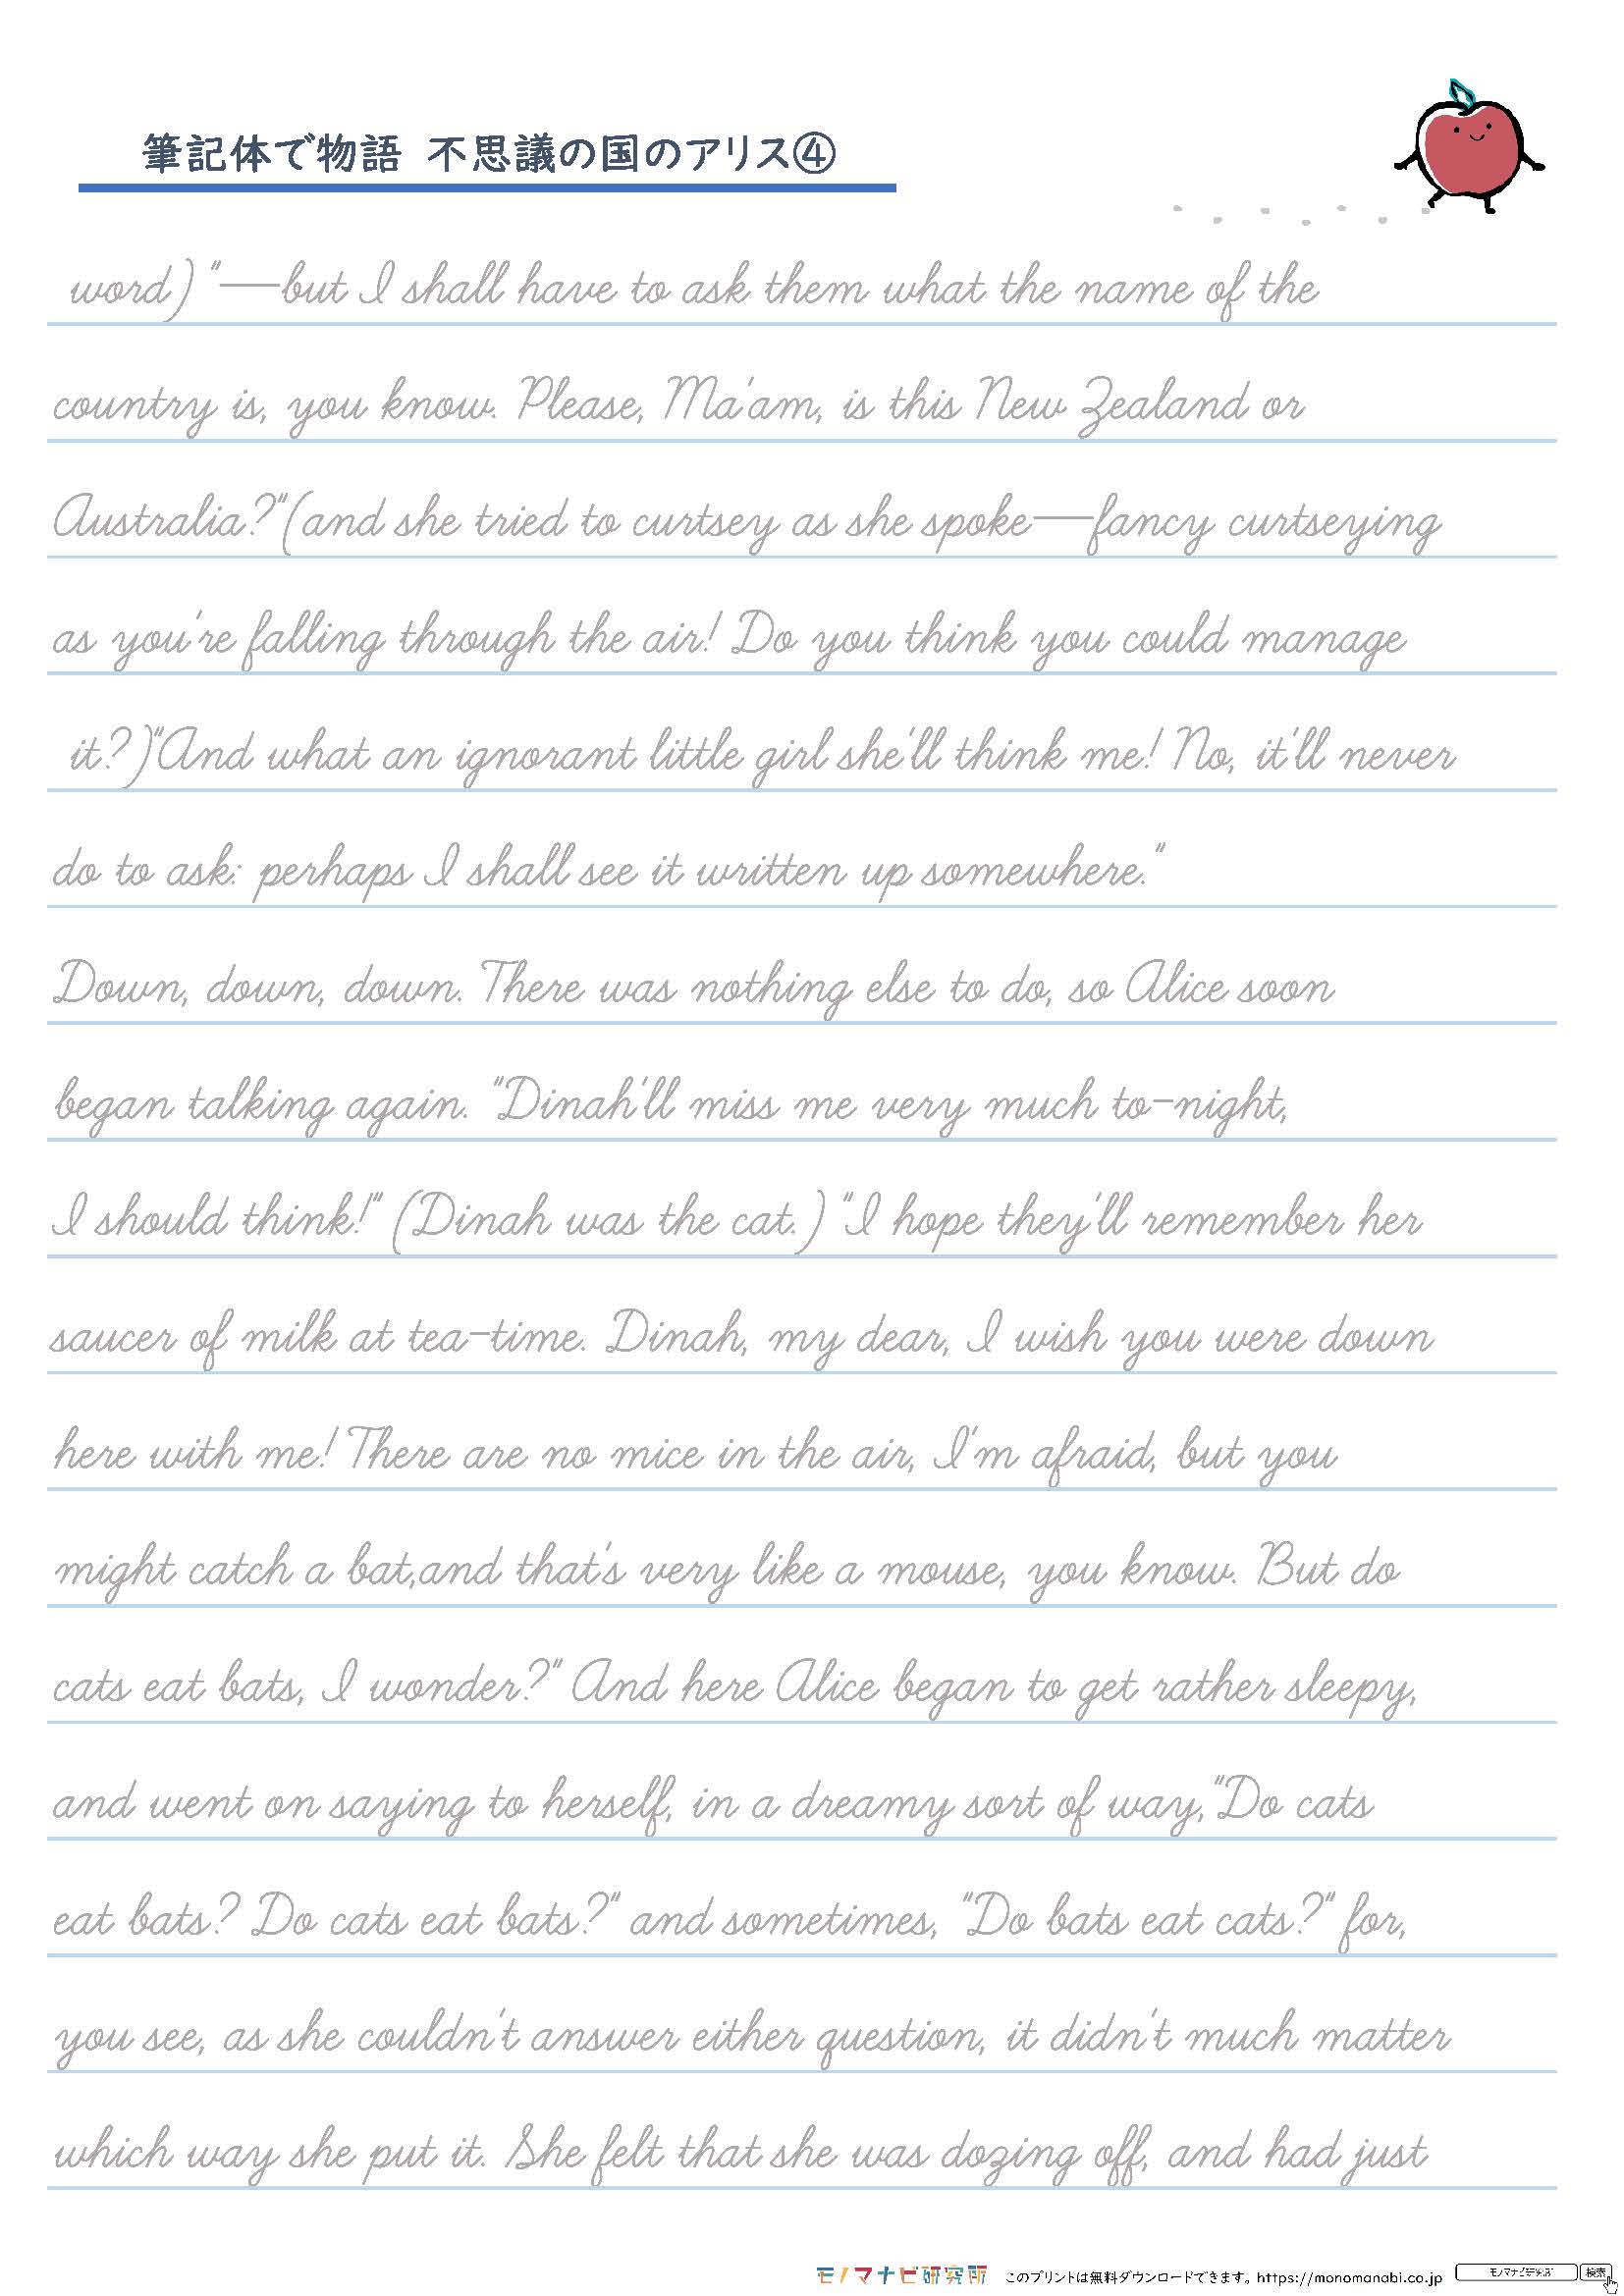 筆記体で物語 不思議の国のアリス④
word) "—but I shall have to ask them what the name of the
country is, you know. Please, Ma'am, is this New Zealand or
Australia?"(and she tried to curtsey as she spoke—fancy curtseying
as you're falling through the air! Do you think you could manage
it?)"And what an ignorant little girl she'll think me! No, it'll never
do to ask: perhaps I shall see it written up somewhere."
Down, down, down. There was nothing else to do, so Alice soon
began talking again. "Dinah'll miss me very much to-night,
I should think!" (Dinah was the cat.) "I hope they'll remember her
saucer of milk at tea-time. Dinah, my dear, I wish you were down
here with me! There are no mice in the air, I'm afraid, but you
might catch a bat,and that's very like a mouse, you know. But do
cats eat bats, I wonder?" And here Alice began to get rather sleepy,
and went on saying to herself, in a dreamy sort of way,"Do cats
eat bats? Do cats eat bats?" and sometimes, "Do bats eat cats?" for,
you see, as she couldn't answer either question, it didn't much matter
which way she put it. She felt that she was dozing off, and had just
モノマナビ研究所 このプリントは無料ダウンロードできます。https://monomanabi.co.jp モノマナビ研究所 検索